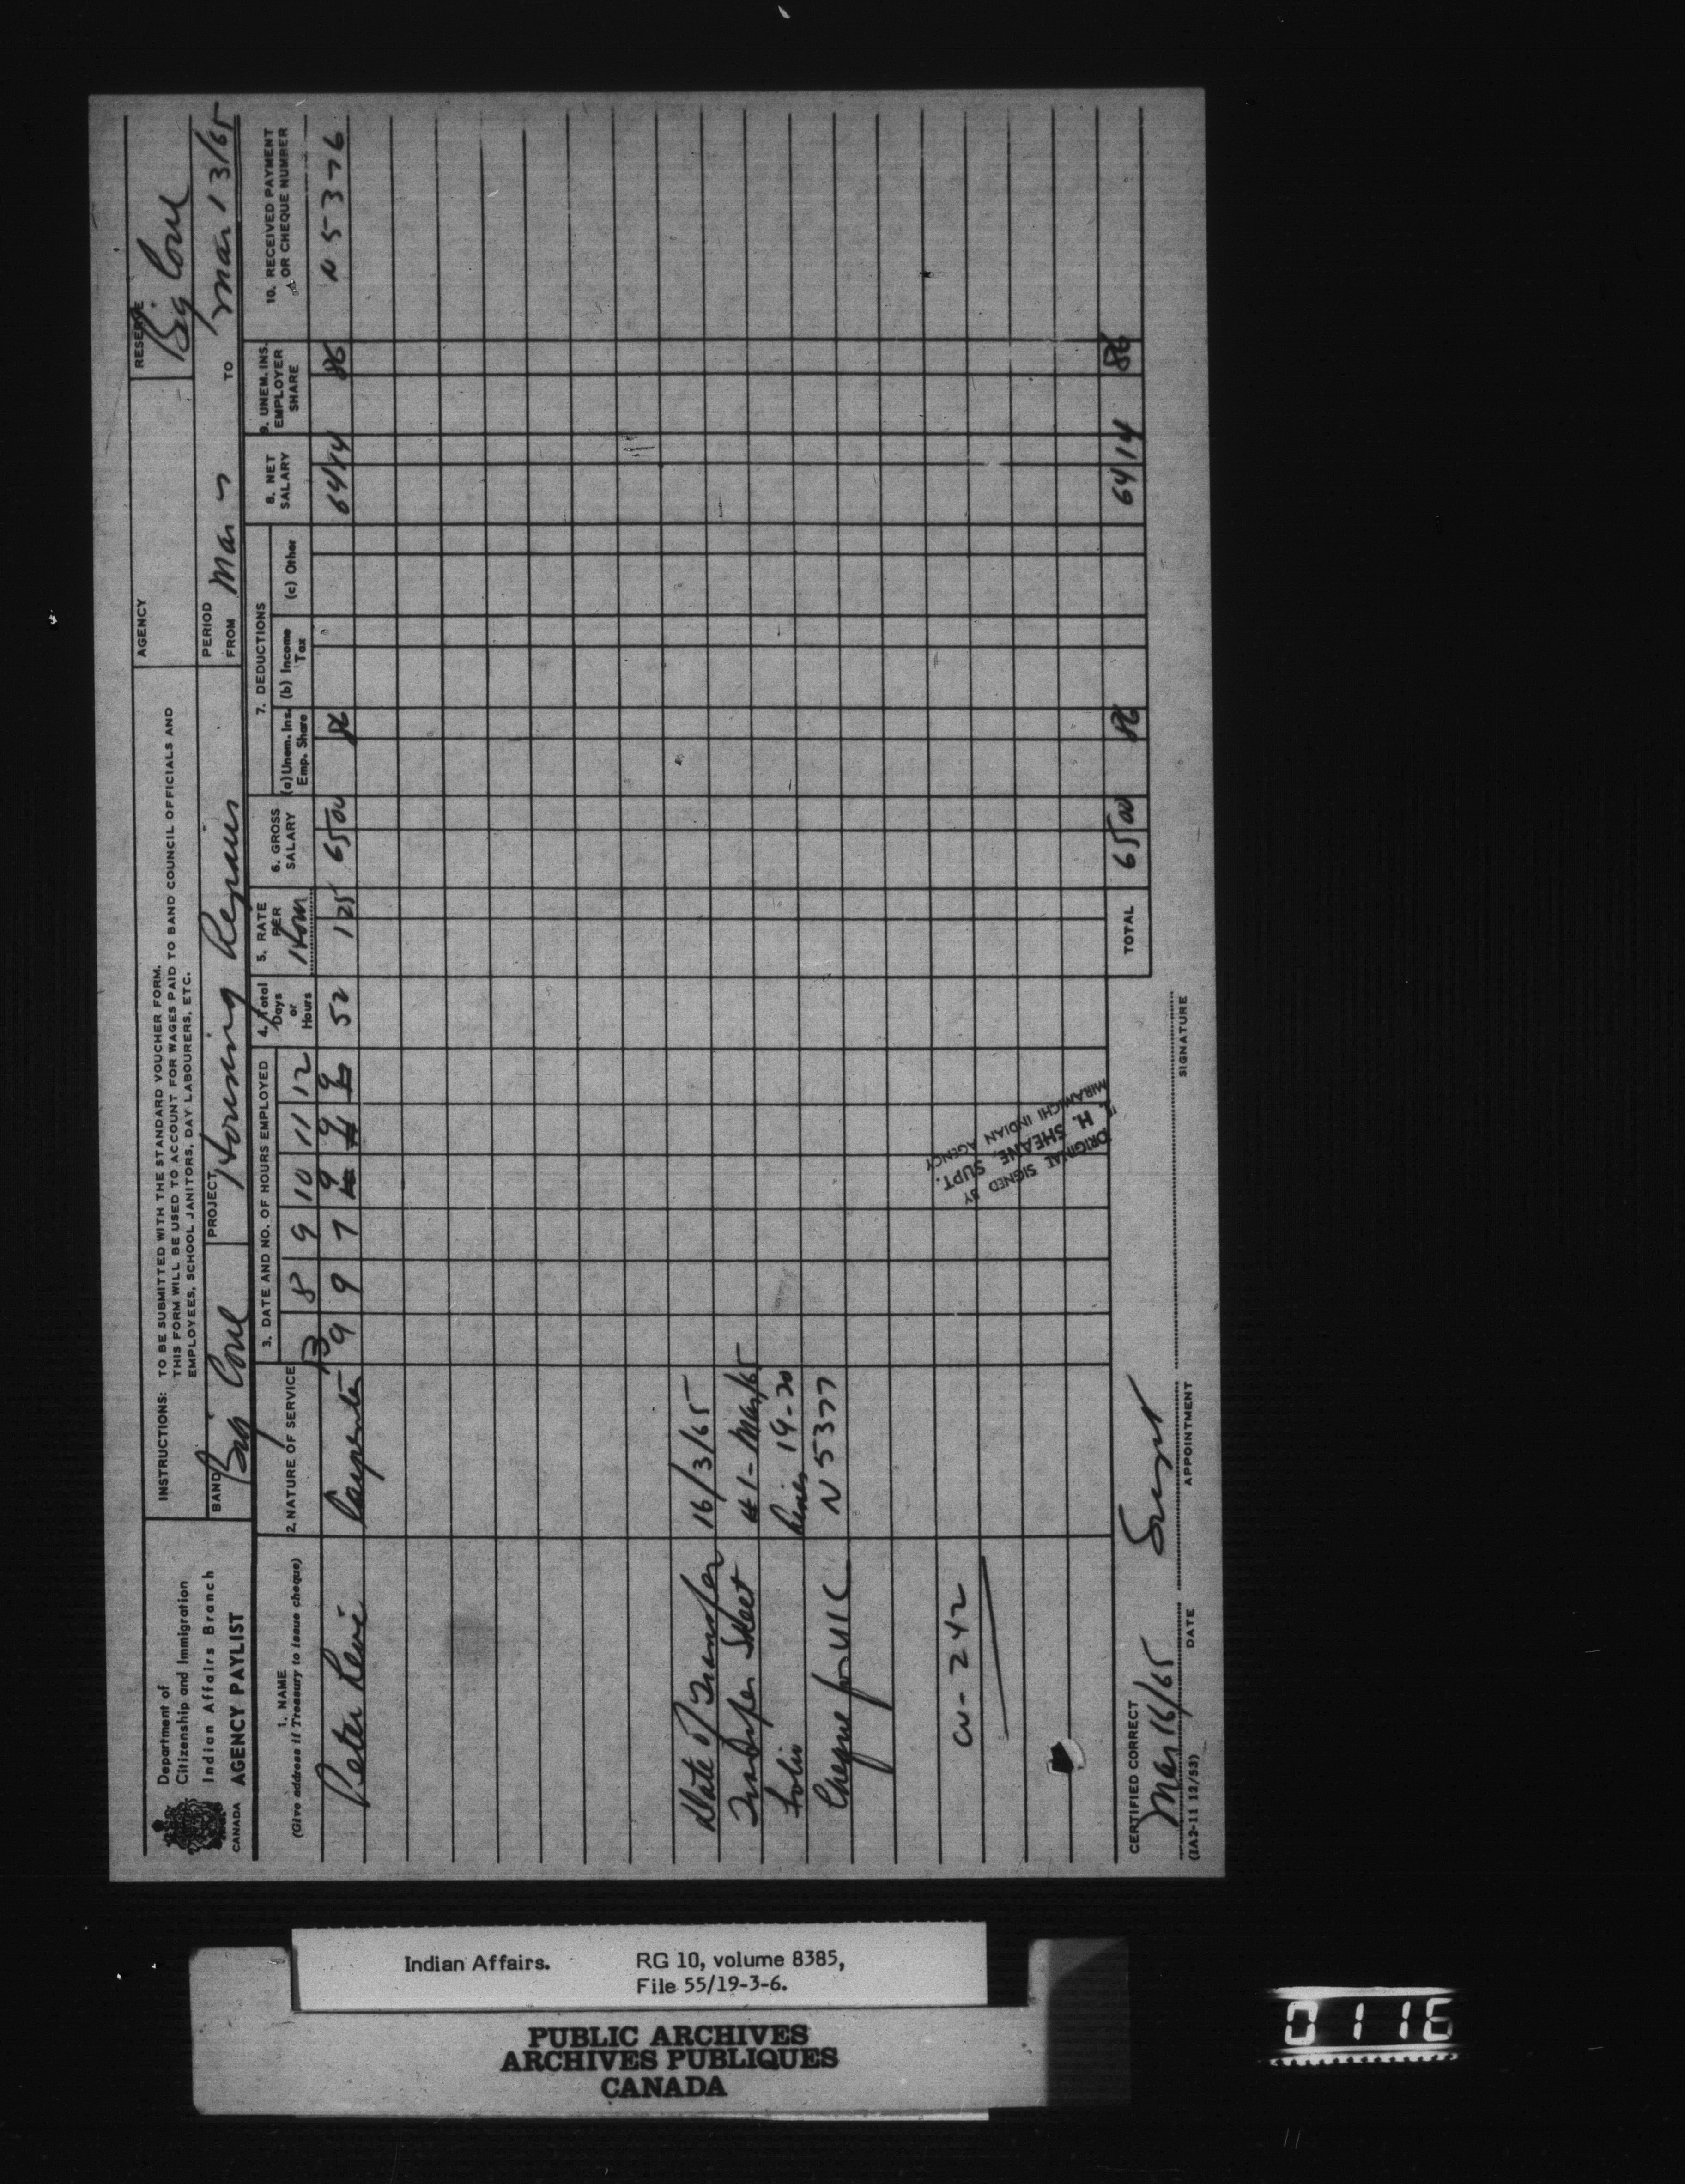 Department of
Citizenship and Immigration
Indian Affairs Branch
CANADA AGENCY PAYLIST
INSTRUCTIONS: TO BE SUBMITTED WITH THE STANDARD VOUCHER FORM.
THIS FORM WILL BE USED TO ACCOUNT FOR WAGES PAID TO BAND COUNCIL OFFICIALS AND
EMPLOYEES, SCHOOL JANITORS, DAY LABOURERS, ETC.
AGENCY
RESERVE Big Cove
BAND Big Cove
PROJECT Housing Repairs
PERIOD
FROM Mar TO Mar 13/65
1. NAME
(Give address if Treasury to issue cheque)
2. NATURE OF SERVICE
3. DATE AND NO. OF HOURS EMPLOYED
13 8 9 10 11 12
4. Total Days or Hours
5. RATE PER Hour
6. GROSS SALARY
7. DEDUCTIONS
(a) Unem. Ins. Emp. Share
(b) Income Tax
(c) Other
8. NET SALARY
9. UNEM. INS. EMPLOYER SHARE
10. RECEIVED PAYMENT OR CHEQUE NUMBER
Peter Levi Carpenter 9 9 7 9 9 9 52 1 25 65 00 86 64 14 86 N 5376
Date of Transfer 16/3/65
Transfer Sheet #1-Mar/65
Folio Lines 19-20
Cheque for UIC N 5377
W-242
ORIGINAL SIGNED BY
H. SHEANE, SUPT.
MIRAMICHI INDIAN AGENCY
TOTAL 65 00 86 64 14 86
CERTIFIED CORRECT
Mar 16/65 Supt
DATE APPOINTMENT SIGNATURE
(IA2-11 12/53)
Indian Affairs. RG 10, volume 8385,
File 55/19-3-6.
PUBLIC ARCHIVES
ARCHIVES PUBLIQUES
CANADA
0116